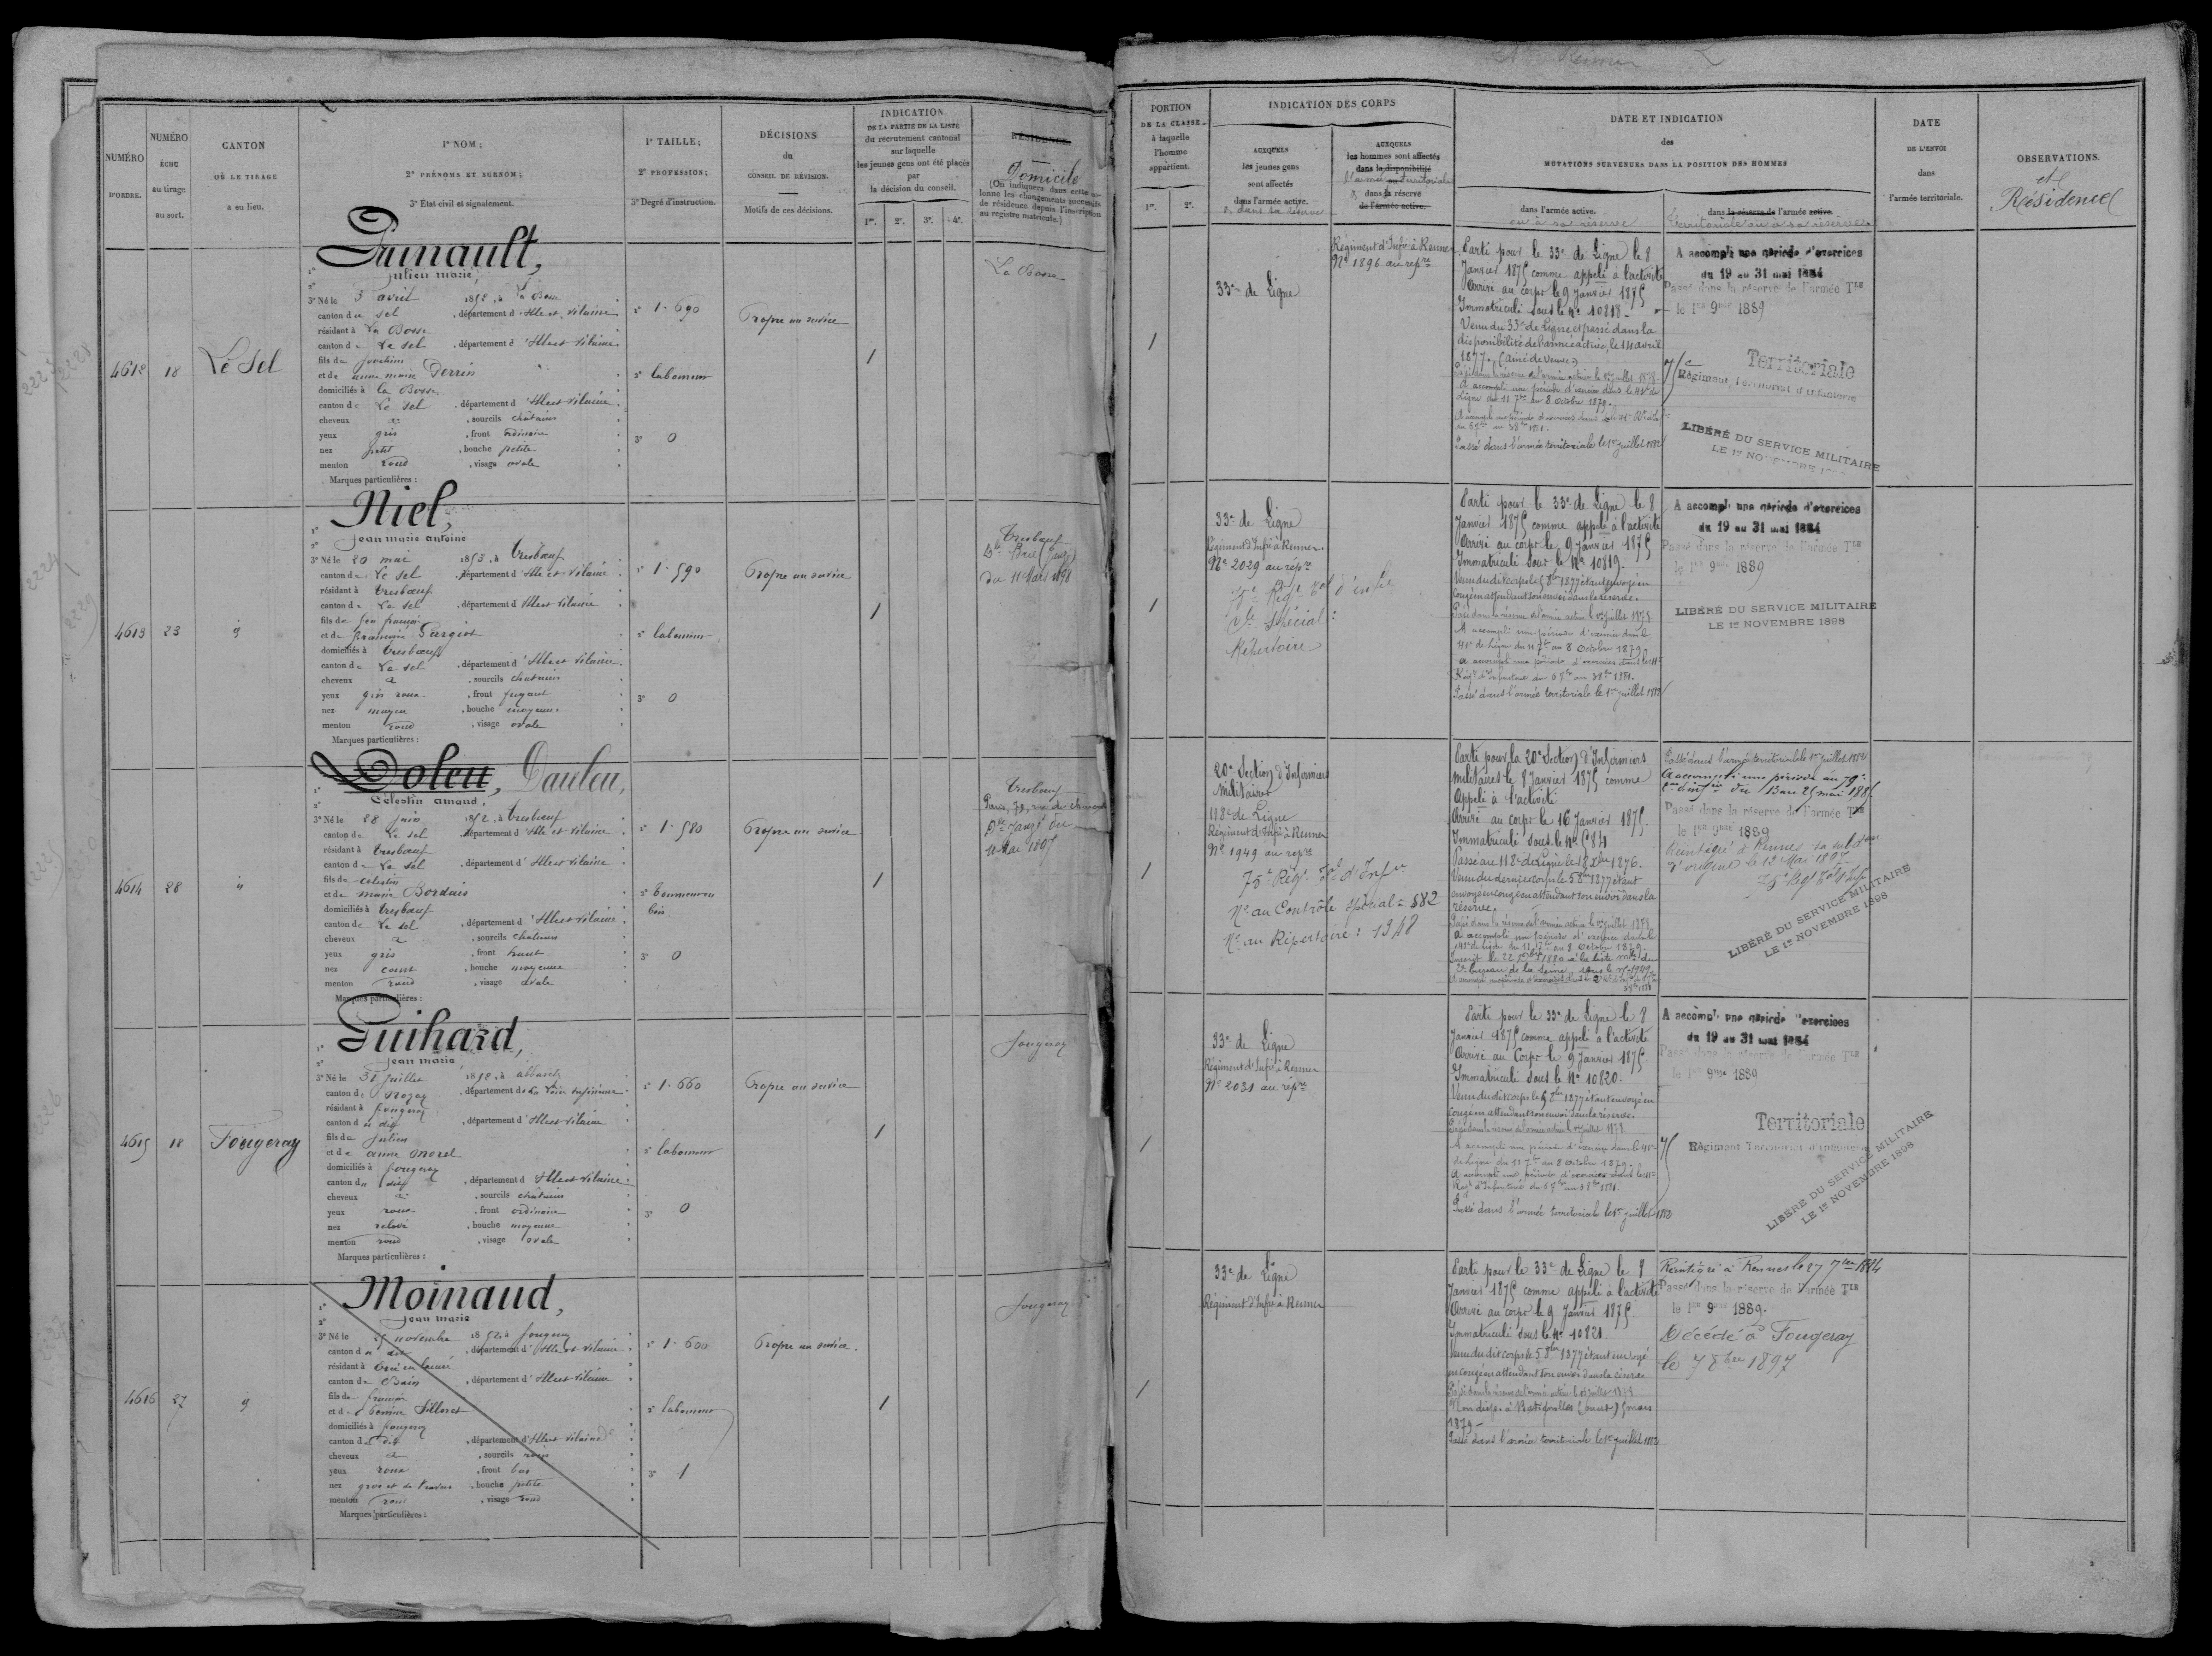 NUMÉRO
D'ORDRE.
NUMÉRO
ÉCHU
au tirage
au sort.
CANTON
OÙ LE TIRAGE
a eu lieu.
1° NOM;
2° PRÉNOMS ET SURNOM;
3° État civil et signalement.
1° TAILLE;
2° PROFESSION;
3° Degré d'instruction.
DÉCISIONS
du
CONSEIL DE RÉVISION.
Motifs de ces décisions.
INDICATION
DE LA PARTIE DE LA LISTE
du recrutement cantonal
sur laquelle
les jeunes gens ont été placés
par
la décision du conseil.
1re. 2e. 3e. 4e.
RÉSIDENCE.
Domicile
(On indiquera dans cette colonne les changements successifs
de résidence depuis l'inscription
au registre matricule.)
4612
18
Le Sel
Julien marie
3° Né le 3 avril 1852, à La Bosse
canton de sel, département d'Ille et Vilaine
résidant à La Bosse
canton de Le sel, département d'Ille et Vilaine
fils de Joachim
et de anne marie Derrien
domiciliés à la Bosse
canton de Le sel, département d'Ille et Vilaine
cheveux a, sourcils chatains
yeux gris, front ordinaire
nez petit, bouche petite
menton rond, visage ovale
Marques particulières :
1° 1.690
2° laboureur
3° 0
Propre au service
1
La Bosse
4613
23
Niel,
Jean marie antoine
3° Né le 20 mai 1853, à Tresbœuf
canton de Le sel, département d'Ille et Vilaine
résidant à Tresbœuf
canton de Le sel, département d'Ille et Vilaine
fils de feu françois
et de françoise
domiciliés à Tresbœuf
canton de Le sel, département d'Ille et Vilaine
cheveux a, sourcils chatains
yeux gris roux, front fuyant
nez moyen, bouche moyenne
menton rond, visage ovale
Marques particulières :
1° 1.590
2° laboureur
3° 0
Propre au service
1
Tresbœuf
du 11 Mars 1898
4614
28
Doleu, Dauleu,
Célestin amand,
3° Né le 28 Juin 1852, à Tresbœuf
canton de Le sel, département d'Ille et Vilaine
résidant à Tresbœuf
canton de Le sel, département d'Ille et Vilaine
fils de Célestin
et de marie Bordais
domiciliés à Tresbœuf
canton de Le sel, département d'Ille et Vilaine
cheveux a, sourcils chatains
yeux gris, front haut
nez court, bouche moyenne
menton rond, visage ovale
Marques particulières :
1° 1.580
3° 0
Propre au service
1
Tresbœuf
4615
18
Fougeray
Guihard,
Jean marie
résidant à fougeray
canton du dit, département d'Ille et Vilaine
fils de Julien
et de anne morel
domiciliés à fougeray
canton du dit, département d'Ille et Vilaine
cheveux a, sourcils chatains
yeux roux, front ordinaire
nez relevé, bouche moyenne
menton rond, visage ovale
Marques particulières :
1° 1.660
2° laboureur
3° 0
Propre au service
1
fougeray
4616
27
Moinaud,
Jean marie
3° Né le 25 novembre 1852, à fougeray
canton du dit, département d'Ille et Vilaine
canton de Bain, département d'Ille et Vilaine
fils de françois
domiciliés à fougeray
canton du dit, département d'Ille et Vilaine
cheveux a, sourcils noirs
yeux roux, front bas
nez gros et de travers, bouche petite
menton rond, visage rond
Marques particulières :
1° 1.600
2° laboureur
3° 1
Propre au service.
1
fougeray
PORTION
DE LA CLASSE
à laquelle
l'homme
appartient.
1re. 2e.
INDICATION DES CORPS
AUXQUELS
les jeunes gens
sont affectés
dans l'armée active.
ou dans sa réserve
AUXQUELS
les hommes sont affectés
dans la disponibilité
l'armée ou territoriale
dans la réserve
de l'armée active.
DATE ET INDICATION
des
MUTATIONS SURVENUES DANS LA POSITION DES HOMMES
dans l'armée active.
ou à sa réserve
dans la réserve de l'armée active.
territoriale ou à sa réserve
DATE
DE L'ENVOI
dans
l'armée territoriale.
OBSERVATIONS.
et
Résidence
1
33e de Ligne
Régiment d'Infie à Rennes
No 1896 au repre
Parti pour le 33e de Ligne le 8
Janvier 1875 comme appelé à l'activité
Arrivé au corps le 9 Janvier 1875
Immatriculé sous le No 10818
Venu du 33e de Ligne et passé dans la
disponibilité de l'armée active, le 14 avril
1877. (aîné de veuve)
Passé dans la réserve de l'armée active le 1er juillet 1878
A accompli une période d'exercices dans le 41e de
Ligne du 11 7bre au 8 octobre 1879.
Passé dans l'armée territoriale le 1er juillet 1882
A accompli une période d'exercices
du 19 au 31 mai 1884
Passé dans la réserve de l'armée Tle
le 1er 9bre 1889
75e Régiment Territorial d'Infanterie
Territoriale
LIBÉRÉ DU SERVICE MILITAIRE
LE 1er NOVEMBRE 1898
1
33e de Ligne
Régiment d'Infie à Rennes
No 2029 au repre
75e Regt Tal d'Infie
Cle Spécial :
Répertoire
Parti pour le 33e de Ligne le 8
Janvier 1875 comme appelé à l'activité
Arrivé au corps le 9 Janvier 1875
Immatriculé sous le No 10819.
Venu du dit corps le 5 8bre 1877 étant envoyé en
congé en attendant son envoi dans la réserve.
Passé dans la réserve de l'armée active le 1er juillet 1878
A accompli une période d'exercices dans le
41e de Ligne du 11 7bre au 8 octobre 1879.
A accompli une période d'exercices dans le 41e
Passé dans l'armée territoriale le 1er juillet 1882
A accompli une période d'exercices
du 19 au 31 mai 1884
Passé dans la réserve de l'armée Tle
le 1er 9bre 1889
LIBÉRÉ DU SERVICE MILITAIRE
LE 1er NOVEMBRE 1898
1
20e Section d'Infirmiers
Militaires
118e de Ligne
Régiment d'Infie à Rennes
No 1949 au repre
75e Regt Tal d'Infie
No au Contrôle spécial = 582
No au Répertoire : 1348
Parti pour la 20e Section d'Infirmiers
Militaires le 8 Janvier 1875 comme
Appelé à l'activité
Arrivé au corps le 16 Janvier 1875.
Immatriculé sous le No 584
Venu du dernier corps le 5 8bre 1877 étant
envoyé en congé en attendant son envoi dans la
réserve.
Passé dans la réserve de l'armée active le 1er juillet 1878
A accompli une période d'exercices dans le
41e de Ligne du 11 7bre au 8 octobre 1879.
Passé dans l'armée territoriale le 1er juillet 1882
Passé dans la réserve de l'armée Tle
le 1er 9bre 1889
Réintégré à Rennes sa subdon
d'origine le 12 Mai 1897
75e Regt Tal d'Infie
LIBÉRÉ DU SERVICE MILITAIRE
LE 1er NOVEMBRE 1898
1
33e de Ligne
Régiment d'Infie à Rennes
No 2031 au repre
Parti pour le 33e de Ligne le 8
Janvier 1875 comme appelé à l'activité
Arrivé au Corps le 9 Janvier 1875
Immatriculé sous le No 10820.
Venu du dit corps le 5 8bre 1877 étant envoyé en
congé en attendant son envoi dans la réserve.
Passé dans la réserve de l'armée active le 1er juillet 1878
A accompli une période d'exercices dans le 41e
de Ligne du 11 7bre au 8 octobre 1879.
Passé dans l'armée territoriale le 1er juillet 1882
A accompli une période d'exercices
du 19 au 31 mai 1884
Passé dans la réserve de l'armée Tle
le 1er 9bre 1889
Territoriale
75e Régiment Territorial d'Infanterie
LIBÉRÉ DU SERVICE MILITAIRE
LE 1er NOVEMBRE 1898
1
33e de Ligne
Régiment d'Infie à Rennes
Parti pour le 33e de Ligne le 8
Janvier 1875 comme appelé à l'activité
Arrivé au corps le 9 Janvier 1875
Immatriculé sous le No 10821
Venu du dit corps le 5 8bre 1877 étant envoyé
en congé en attendant son envoi dans la réserve
Passé dans la réserve de l'armée active le 1er juillet 1878
1879
Passé dans l'armée territoriale le 1er juillet 1882
Réintégré à Rennes le 27 7bre 1884
Passé dans la réserve de l'armée Tle
le 1er 9bre 1889.
Décédé à Fougeray
le 7 8bre 1897